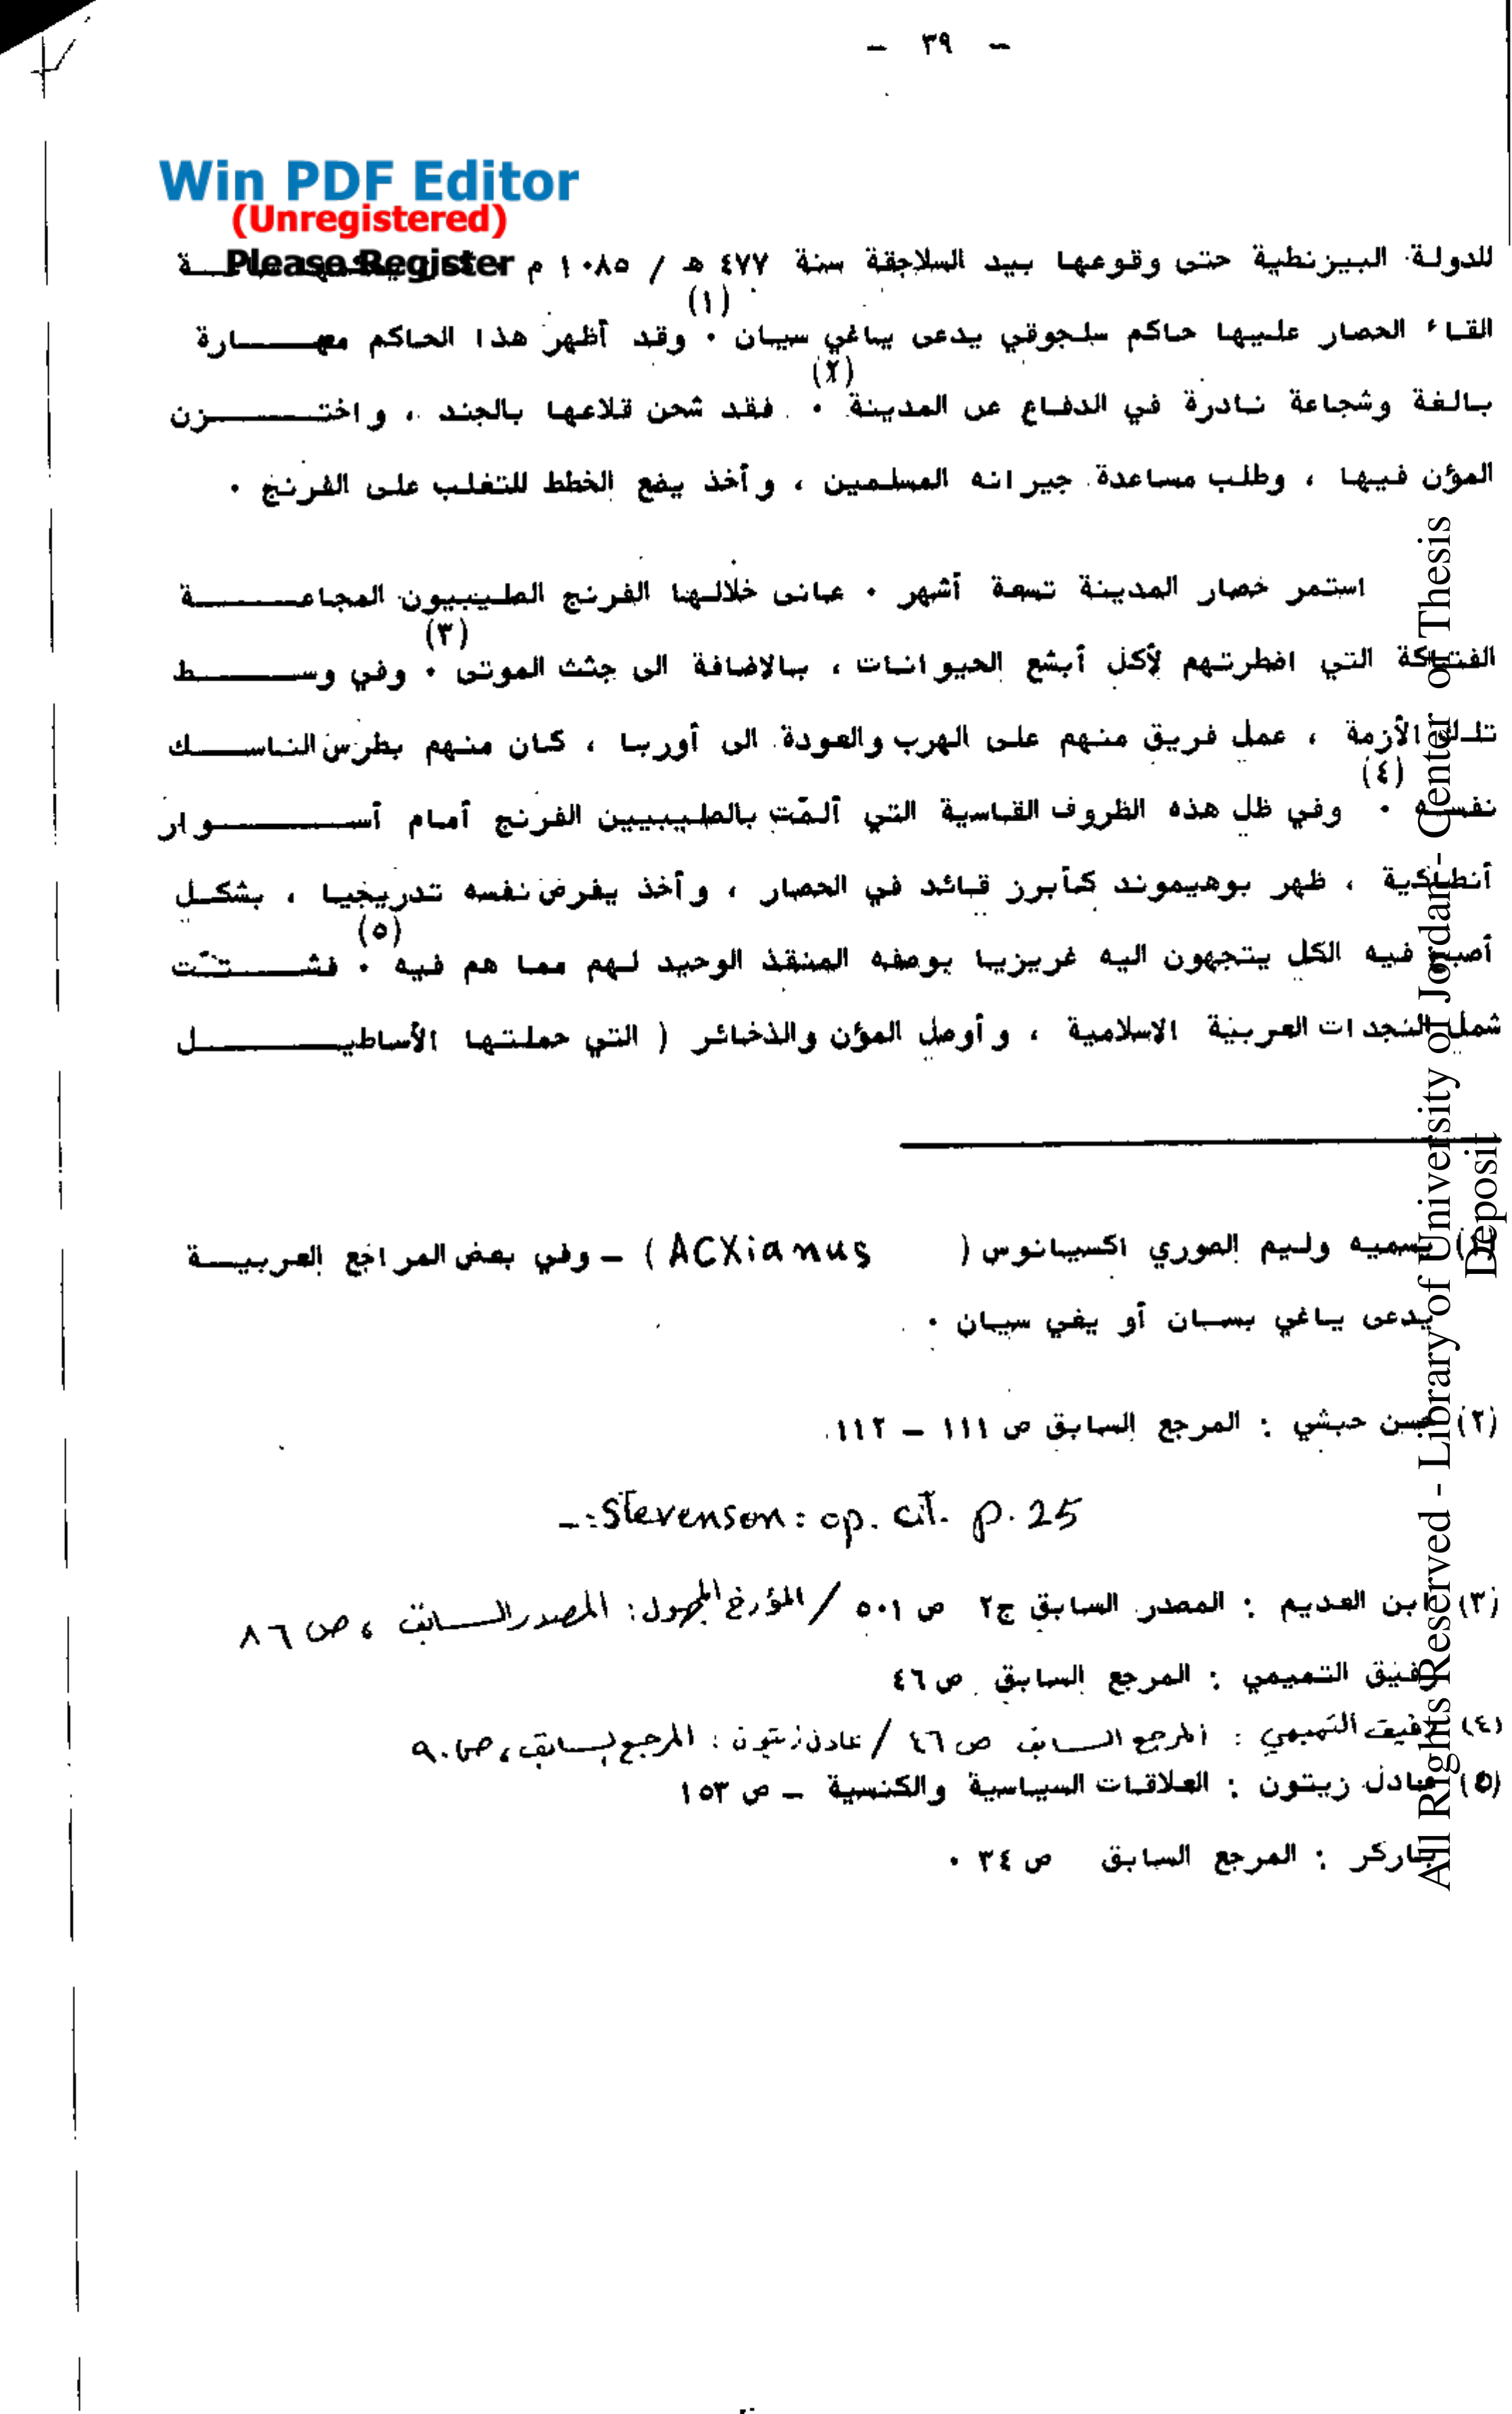 - ٣٩ -
Win PDF Editor
(Unregistered)
Please Register
للدولة البيزنطية حتى وقوعها بيد السلاجقة سنة ٤٧٧ ه / ١٠٨٥ م
القاء الحصار عليها حاكم سلجوقي يدعى يباغي سيان (١) ٠ وقد أظهر هذا الحاكم مهـــــارة
بالغة وشجاعة نادرة في الدفاع عن المدينة (٢) ٠ فقد شحن قلاعها بالجند ، واختـــــــزن
المؤن فيها ، وطلب مساعدة جيرانه المسلمين ، وأخذ يضع الخطط للتغلب على الفرنج ٠
استمر حصار المدينة تسعة أشهر ٠ عانى خلالها الفرنج الصليبيون المجاعـــــــة
الفتاكة التي اضطرتهم لأكل أبشع الحيوانات ، بالاضافة الى جثث الموتى (٣) ٠ وفي وســـــــط
تلك الأزمة ، عمل فريق منهم على الهرب والعودة الى أوربا ، كان منهم بطرس الناســـــك
نفسه (٤) ٠ وفي ظل هذه الظروف القاسية التي ألمّت بالصليبيين الفرنج أمام أســـــــوار
أنطاكية ، ظهر بوهيموند كأبرز قائد في الحصار ، وأخذ يفرض نفسه تدريجيا ، بشكـل
أصبح فيه الكل يتجهون اليه غريزيا بوصفه المنقذ الوحيد لهم مما هم فيه (٥) ٠ فشـــــتّت
شمل النجدات العربية الاسلامية ، وأوصل المؤن والذخائر ( التي حملتها الأساطيـــــــل
(١) يسميه وليم الصوري اكسيانوس ( ACXianus ) – وفي بعض المراجع العربيــة
يدعى ياغي بسان أو يغي سيان ٠
(٢) حسن حبشي : المرجع السابق ص ١١١ – ١١٢
-: Stevenson: op. cit. p. 25
(٣) ابن العديم : المصدر السابق ج٢ ص ٥٠١ / المؤرخ المجهول: المصدر الســـابق ، ص ٨٦
رفيق التميمي : المرجع السابق ص ٤٦
(٤) رفيق التميمي : المرجع الســـابق ص ٤٦ / عادل زيتون : المرجع لســـابق ، ص ٩٠
(٥) عادل زيتون : العلاقات السياسية والكنسية – ص ١٥٣
باركر : المرجع السابق ص ٣٤ ٠
All Rights Reserved - Library of University of Jordan - Center of Thesis
Deposit